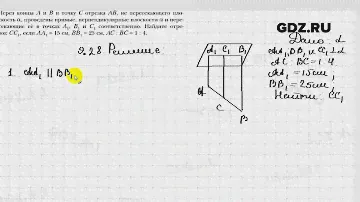 Через концы A и B и точку C отрезка AB, не пересекающего плос-
кость α, проведены прямые, перпендикулярные плоскости α и пере-
секающие её в точках A₁, B₁ и C₁ соответственно. Найдите отре-
зок CC₁, если AA₁ = 15 см, BB₁ = 25 см, AC : BC = 1 : 4.
GDZ.RU
9.28 Решение
Дано: α
AA₁, BB₁ и CC₁⊥α
AC : BC = 1 : 4
AA₁ = 15см,
BB₁ = 25см,
Найти: CC₁
1. AA₁ || BB₁
A₁ C₁ B₁
A
C
B